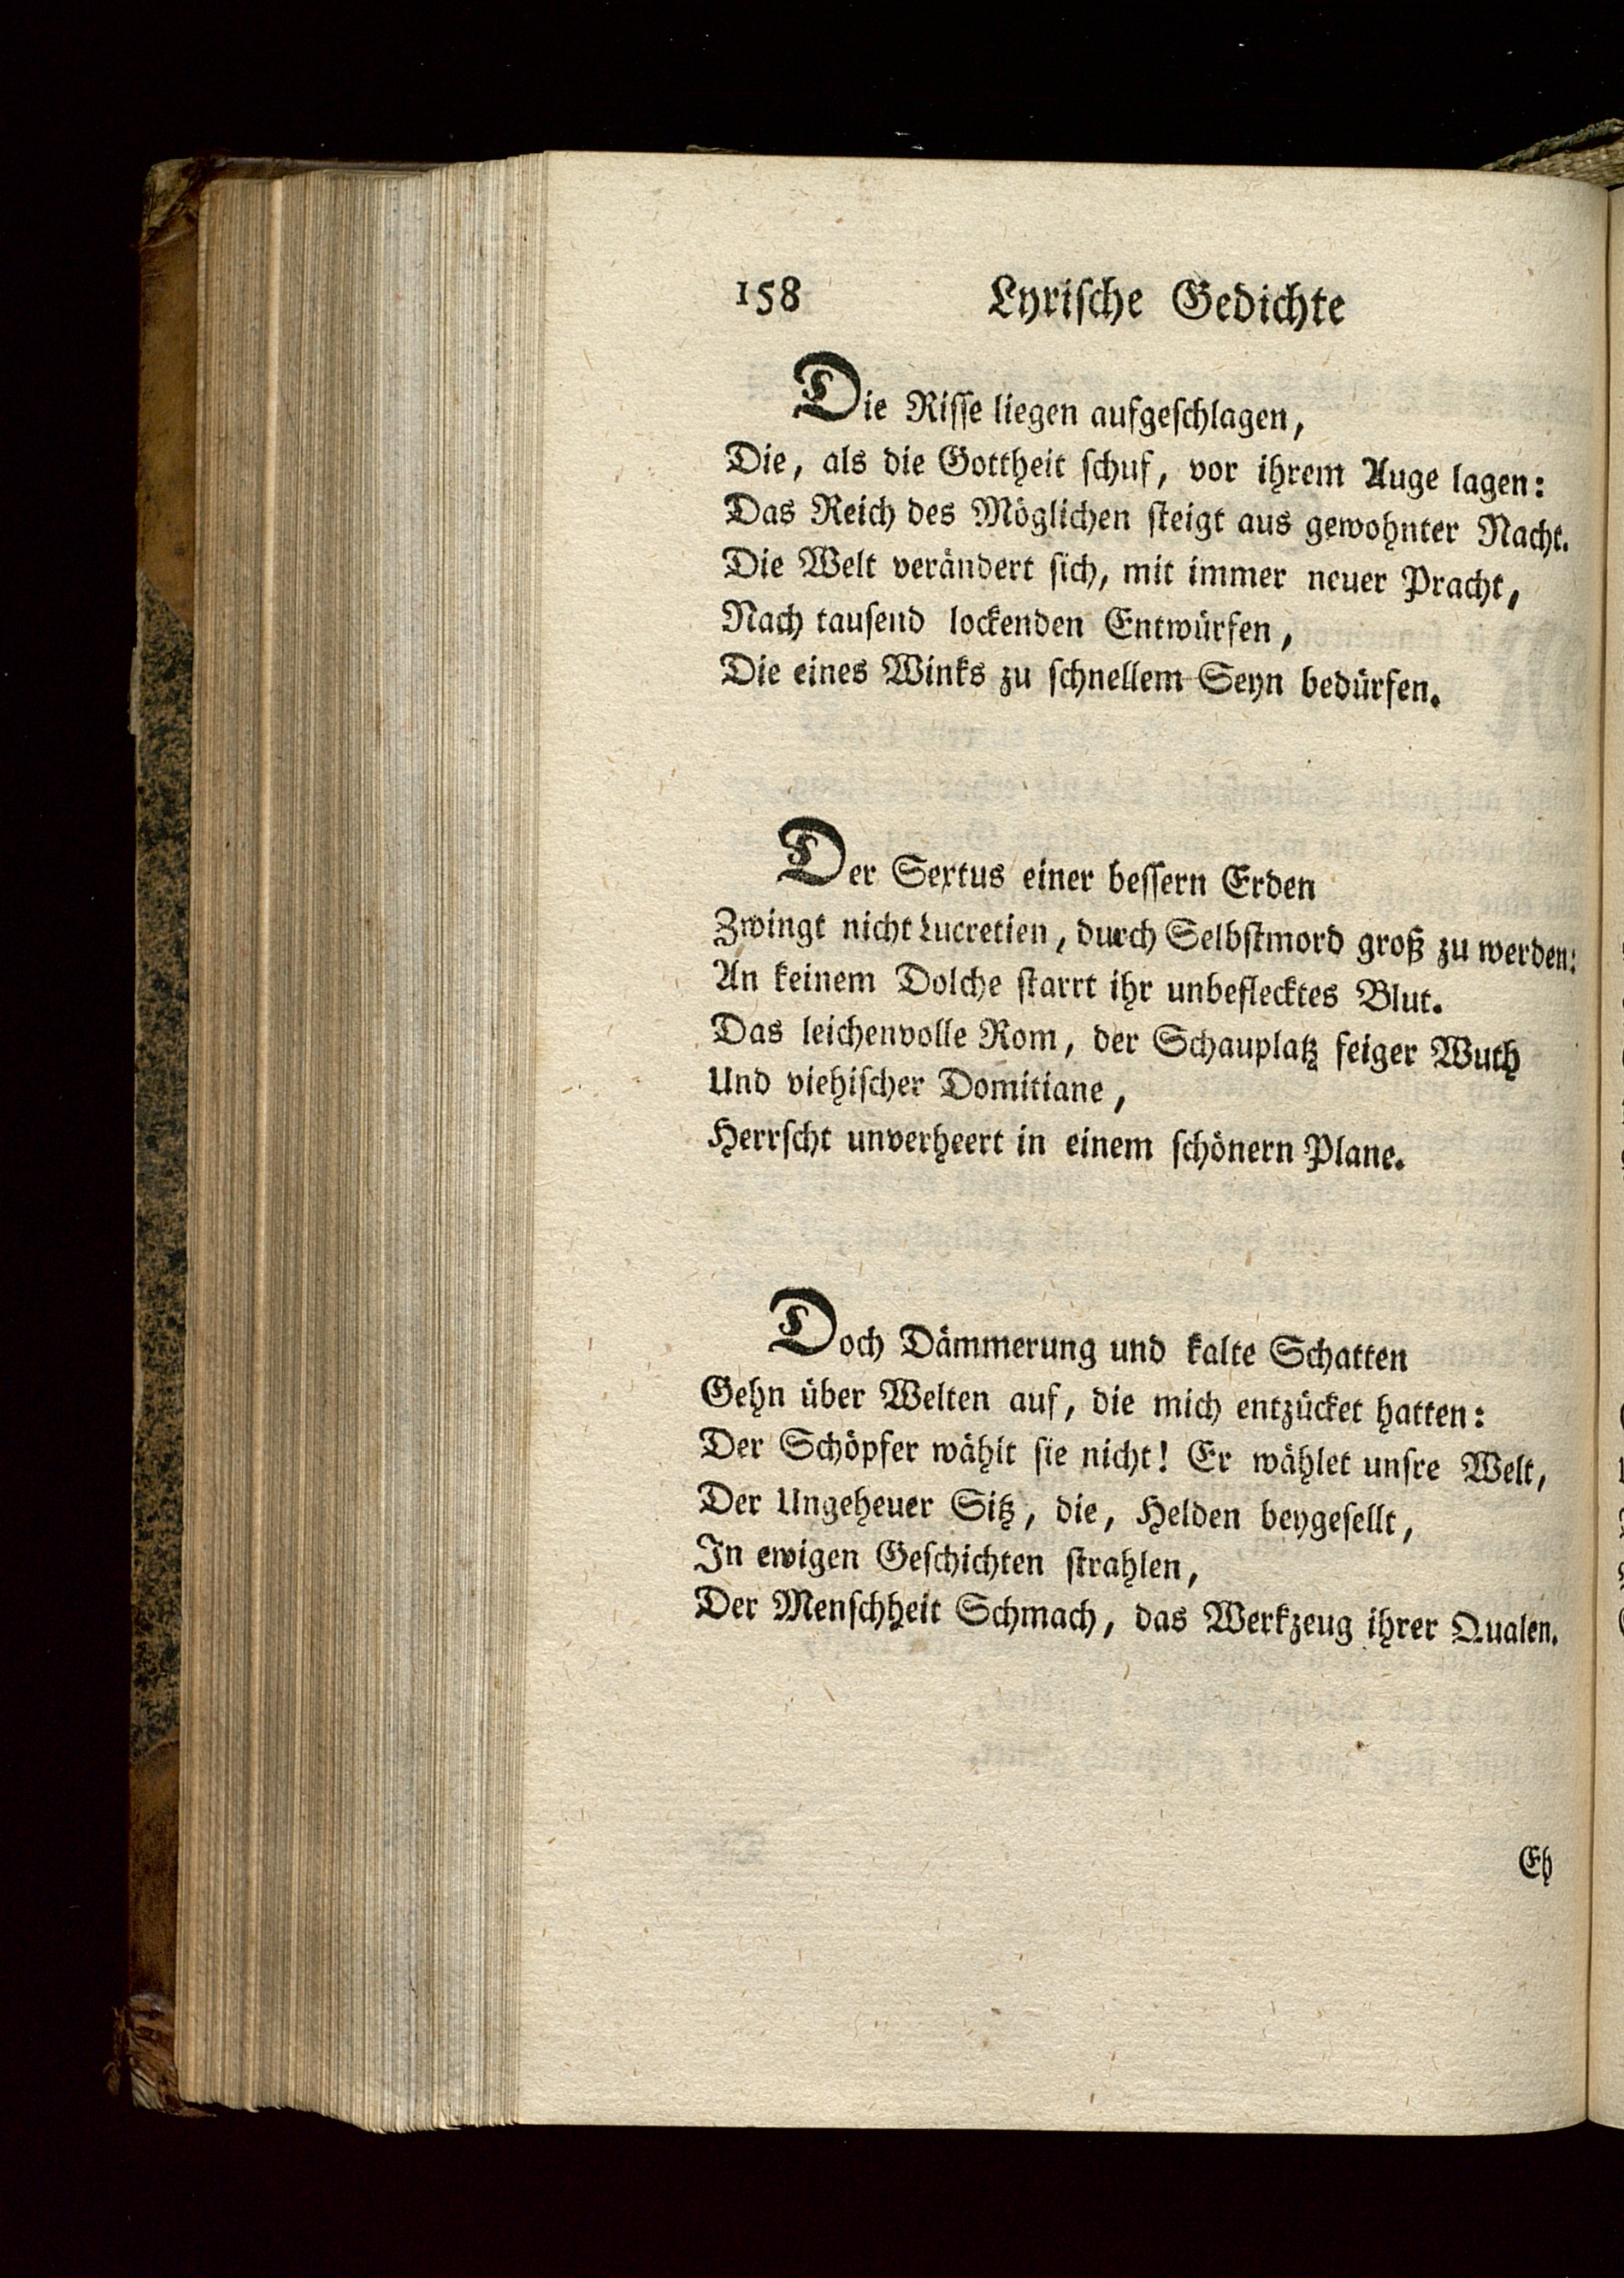 158 Lyriſche Gedichte
Die Riſſe liegen aufgeſchlagen,
Die, als die Gottheit ſchuf, vor ihrem Auge lagen:
Das Reich des Möglichen ſteigt aus gewohnter Nacht.
Die Welt verändert ſich, mit immer neuer Pracht,
Nach tauſend lockenden Entwürfen,
Die eines Winks zu ſchnellem Seyn bedürfen.
Der Sextus einer beſſern Erden
Zwingt nicht Lucretien, durch Selbſtmord groß zu werden:
An keinem Dolche ſtarrt ihr unbeflecktes Blut.
Das leichenvolle Rom, der Schauplatz feiger Wuth
Und viehiſcher Domitiane,
Herrſcht unverheert in einem ſchönern Plane.
Doch Dämmerung und kalte Schatten
Gehn über Welten auf, die mich entzücket hatten:
Der Schöpfer wählt ſie nicht! Er wählet unſre Welt,
Der Ungeheuer Sitz, die, Helden beygeſellt,
In ewigen Geſchichten ſtrahlen,
Der Menſchheit Schmach, das Werkzeug ihrer Qualen.
Eh